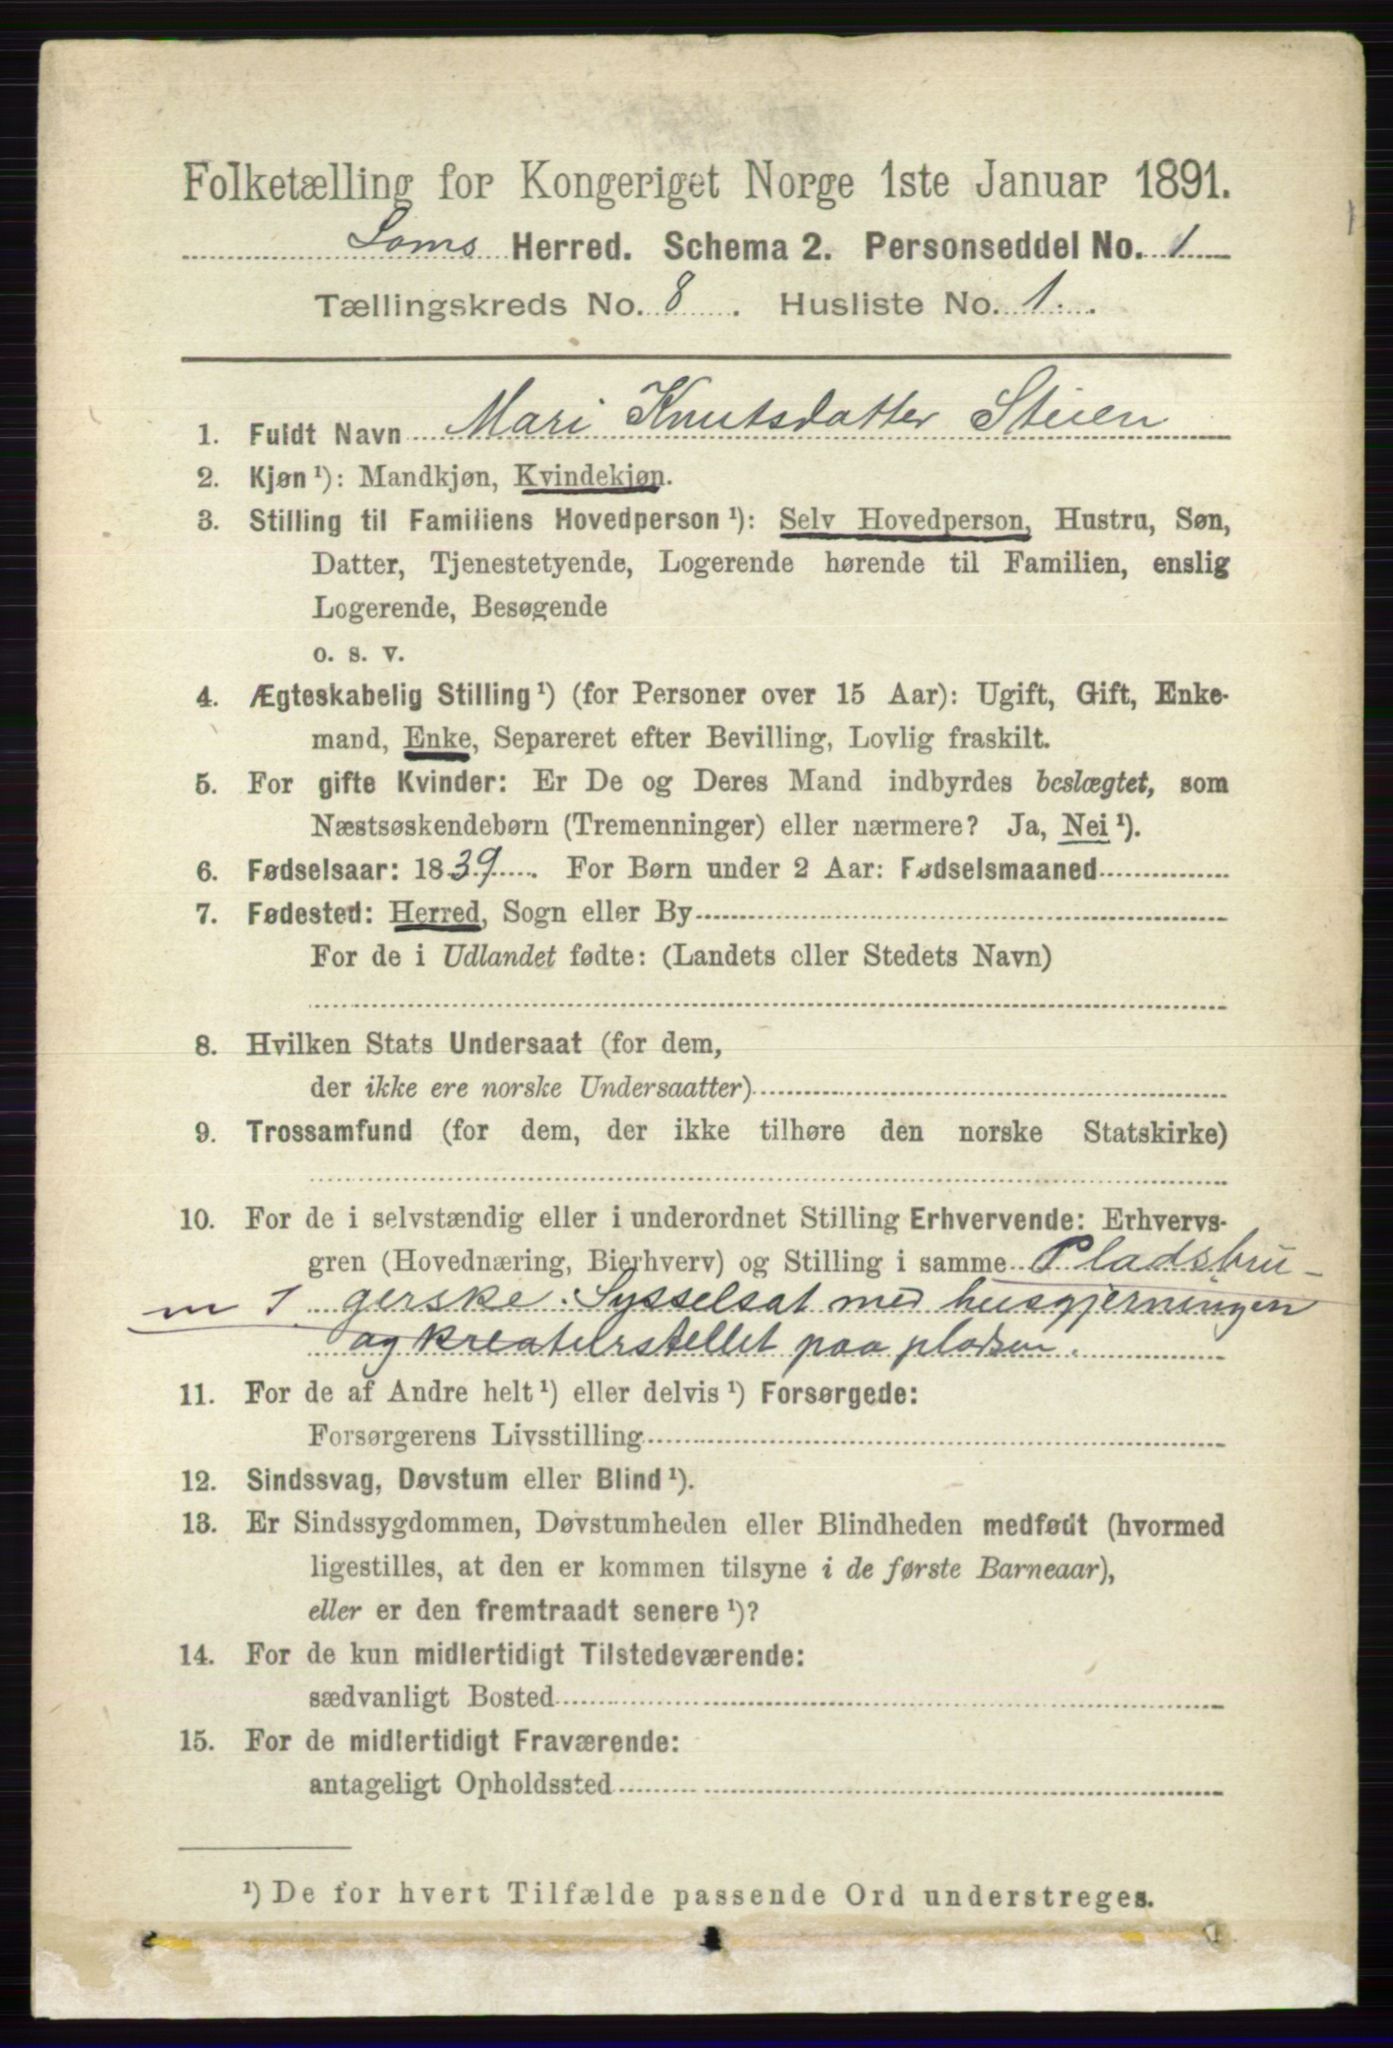 Folketælling for Kongeriget Norge 1ste Januar 1891.
Loms Herred. Schema 2. Personseddel No. 1
Tællingskreds No. 8. Husliste No. 1.
1. Fuldt Navn Mari Knutsdatter Steien
2. Kjøn ¹): Mandkjøn, Kvindekjøn.
3. Stilling til Familiens Hovedperson ¹): Selv Hovedperson, Hustru, Søn,
Datter, Tjenestetyende, Logerende hørende til Familien, enslig
Logerende, Besøgende
o. s. v.
4. Ægteskabelig Stilling ¹) (for Personer over 15 Aar): Ugift, Gift, Enke-
mand, Enke, Separeret efter Bevilling, Lovlig fraskilt.
5. For gifte Kvinder: Er De og Deres Mand indbyrdes beslægtet, som
Næstsøskendebørn (Tremenninger) eller nærmere? Ja, Nei ¹).
6. Fødselsaar: 1839. For Børn under 2 Aar: Fødselsmaaned
7. Fødested: Herred, Sogn eller By
For de i Udlandet fødte: (Landets eller Stedets Navn)
8. Hvilken Stats Undersaat (for dem,
der ikke ere norske Undersaatter)
9. Trossamfund (for dem, der ikke tilhøre den norske Statskirke)
10. For de i selvstændig eller i underordnet Stilling Erhvervende: Erhvervs-
gren (Hovednæring, Bierhverv) og Stilling i samme Pladsbru-
m 1 gerske. Sysselsat med husgjerningen
og kreaturstellet paa pladsen.
11. For de af Andre helt ¹) eller delvis ¹) Forsørgede:
Forsørgerens Livsstilling
12. Sindssvag, Døvstum eller Blind ¹).
13. Er Sindssygdommen, Døvstumheden eller Blindheden medfødt (hvormed
ligestilles, at den er kommen tilsyne i de første Barneaar),
eller er den fremtraadt senere ¹)?
14. For de kun midlertidigt Tilstedeværende:
sædvanligt Bosted
15. For de midlertidigt Fraværende:
antageligt Opholdssted
¹) De for hvert Tilfælde passende Ord understreges.